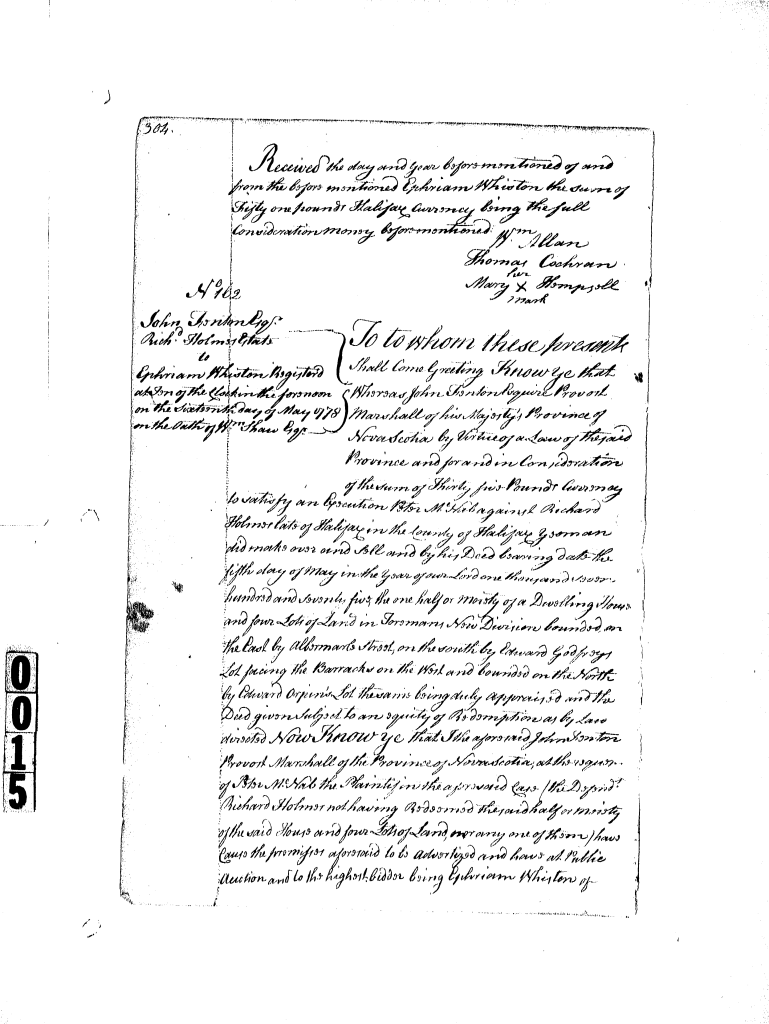 304.
Received the day and year before mentioned of and
from the before mentioned Ephriam Whiston the sum of
Fifty one pounds Halifax Currency being the full
Consideration money before mentioned
Wm Allan
Thomas Cochran
her
Mary X Hempsell
mark
No 162
John Fenton Esqr
Richd Holmes Estate
to
Ephriam Whiston Registerd
at Ten of the Clock in the forenoon
on the Sixteenth day of May 1778
on the Oath of Wm Shaw Esqr
To to whom these presents
Shall Come Greeting Know ye that
Whereas John Fenton Esquire Provost
Marshall of his Majestys Province of
Nova Scotia by Virtue of a Law of the said
Province and for and in Consideration
of the sum of Thirty five Pounds Currency
to satisfy an Execution Peter against Richard
Holmes late of Halifax in the County of Halifax Yeoman
did make over and Sell and by his Deed bearing date the
fifth day of May in the Year of our Lord one thousand seven
hundred and seventy five, the one half or moiety of a Dwelling House
and four Lots of Land in Foremans New Division bounded, on
the East by Albermarle Street, on the south by Edward Godfreys
Lot facing the Barracks on the West and bounded on the North
by Edward Orpins Lot the same being duly appraised and the
Deed given Subject to an equity of Redemption as by Law
directed Now Know ye that I the aforesaid John Fenton
Provost Marshall of the Province of Nova Scotia, at the request
of Peter McNab the Plaintif in the aforesaid Case (the Defendt
Richard Holmes not having Redeemed the said half or moiety
of the said House and four Lots of Land, nor any one of them) have
Cause the premisses aforesaid to be Advertized and have at Public
Auction and to the highest bidder being Ephriam Whiston of
0015